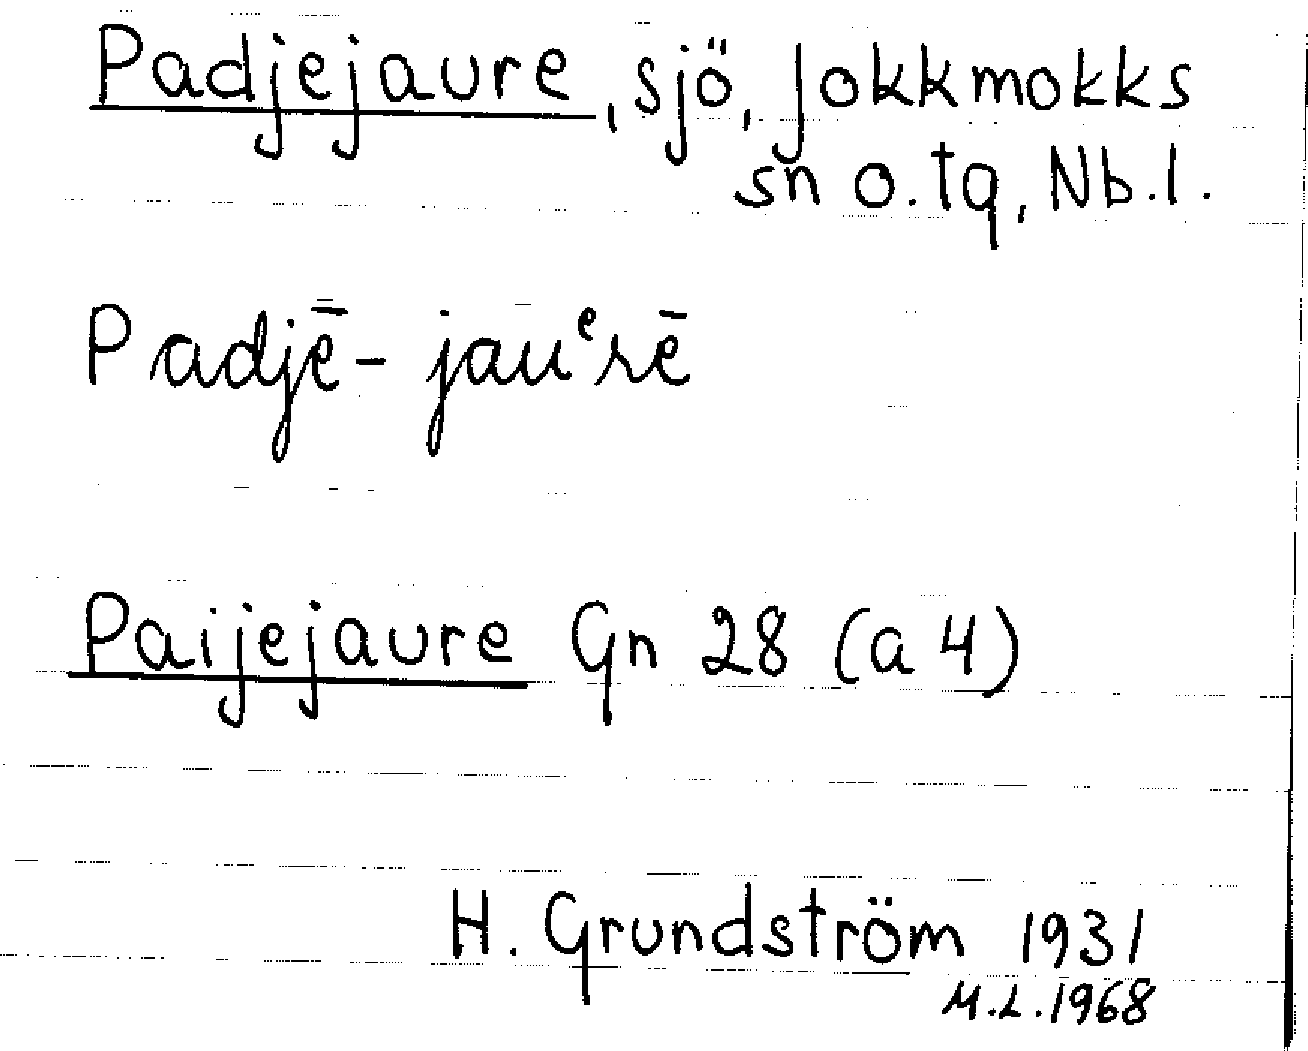 Padjejaure, sjö, Jokkmokks
sn o. tg, Nb. l.
Padjē-jauᵉrē
Paijejaure Gn 28 (a 4)
H. Grundström 1931
M.L. 1968